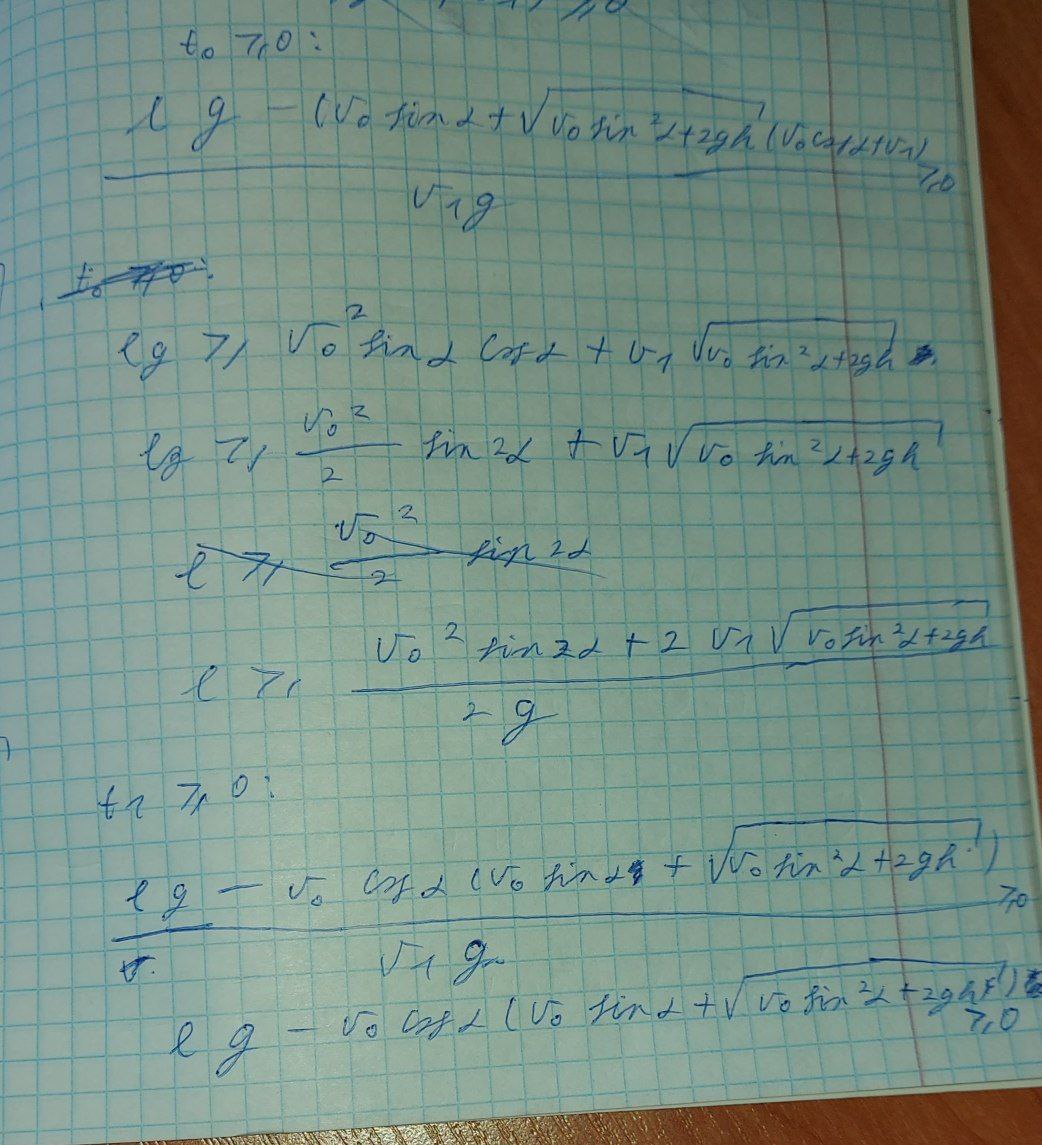 t₀ ⩾ 0:
(l g − (v₀ sin α + √(v₀ sin²α + 2gh) (v₀ cos α + v₁)) / (v₁ g) ⩾ 0
lg ⩾ v₀² sin α cos α + v₁ √(v₀ sin²α + 2gh)
lg ⩾ v₀²/2 sin 2α + v₁ √(v₀ sin²α + 2gh)
l ⩾ v₀²/2 sin 2α
l ⩾ (v₀² sin 2α + 2 v₁ √(v₀ sin²α + 2gh)) / (2 g)
t₁ ⩾ 0:
(l g − v₀ cos α (v₀ sin α + √(v₀ sin²α + 2gh))) / (v₁ g) ⩾ 0
l g − v₀ cos α (v₀ sin α + √(v₀ sin²α + 2gh)) ⩾ 0